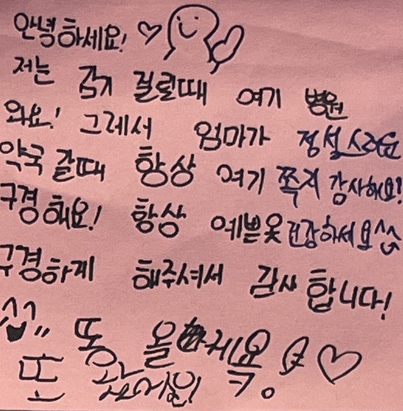 안녕하세요! ♡
저는 감기 걸릴때 여기 병원
와요! 그레서 엄마가 정성스러운
약국 갈때 항상 여기 쪽지 감사해요!
구경해요! 항상 예쁜옷 건강하세요^^
구경하게 해주셔서 감사합니다!
^^ 똥 올께욕 ♡
또